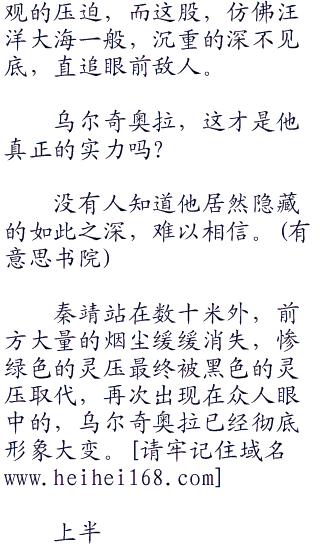 观的压迫，而这股，仿佛汪
洋大海一般，沉重的深不见
底，直追眼前敌人。
乌尔奇奥拉，这才是他
真正的实力吗？
没有人知道他居然隐藏
的如此之深，难以相信。(有
意思书院)
秦靖站在数十米外，前
方大量的烟尘缓缓消失，惨
绿色的灵压最终被黑色的灵
压取代，再次出现在众人眼
中的，乌尔奇奥拉已经彻底
形象大变。[请牢记住域名
www.heihei168.com]
上半